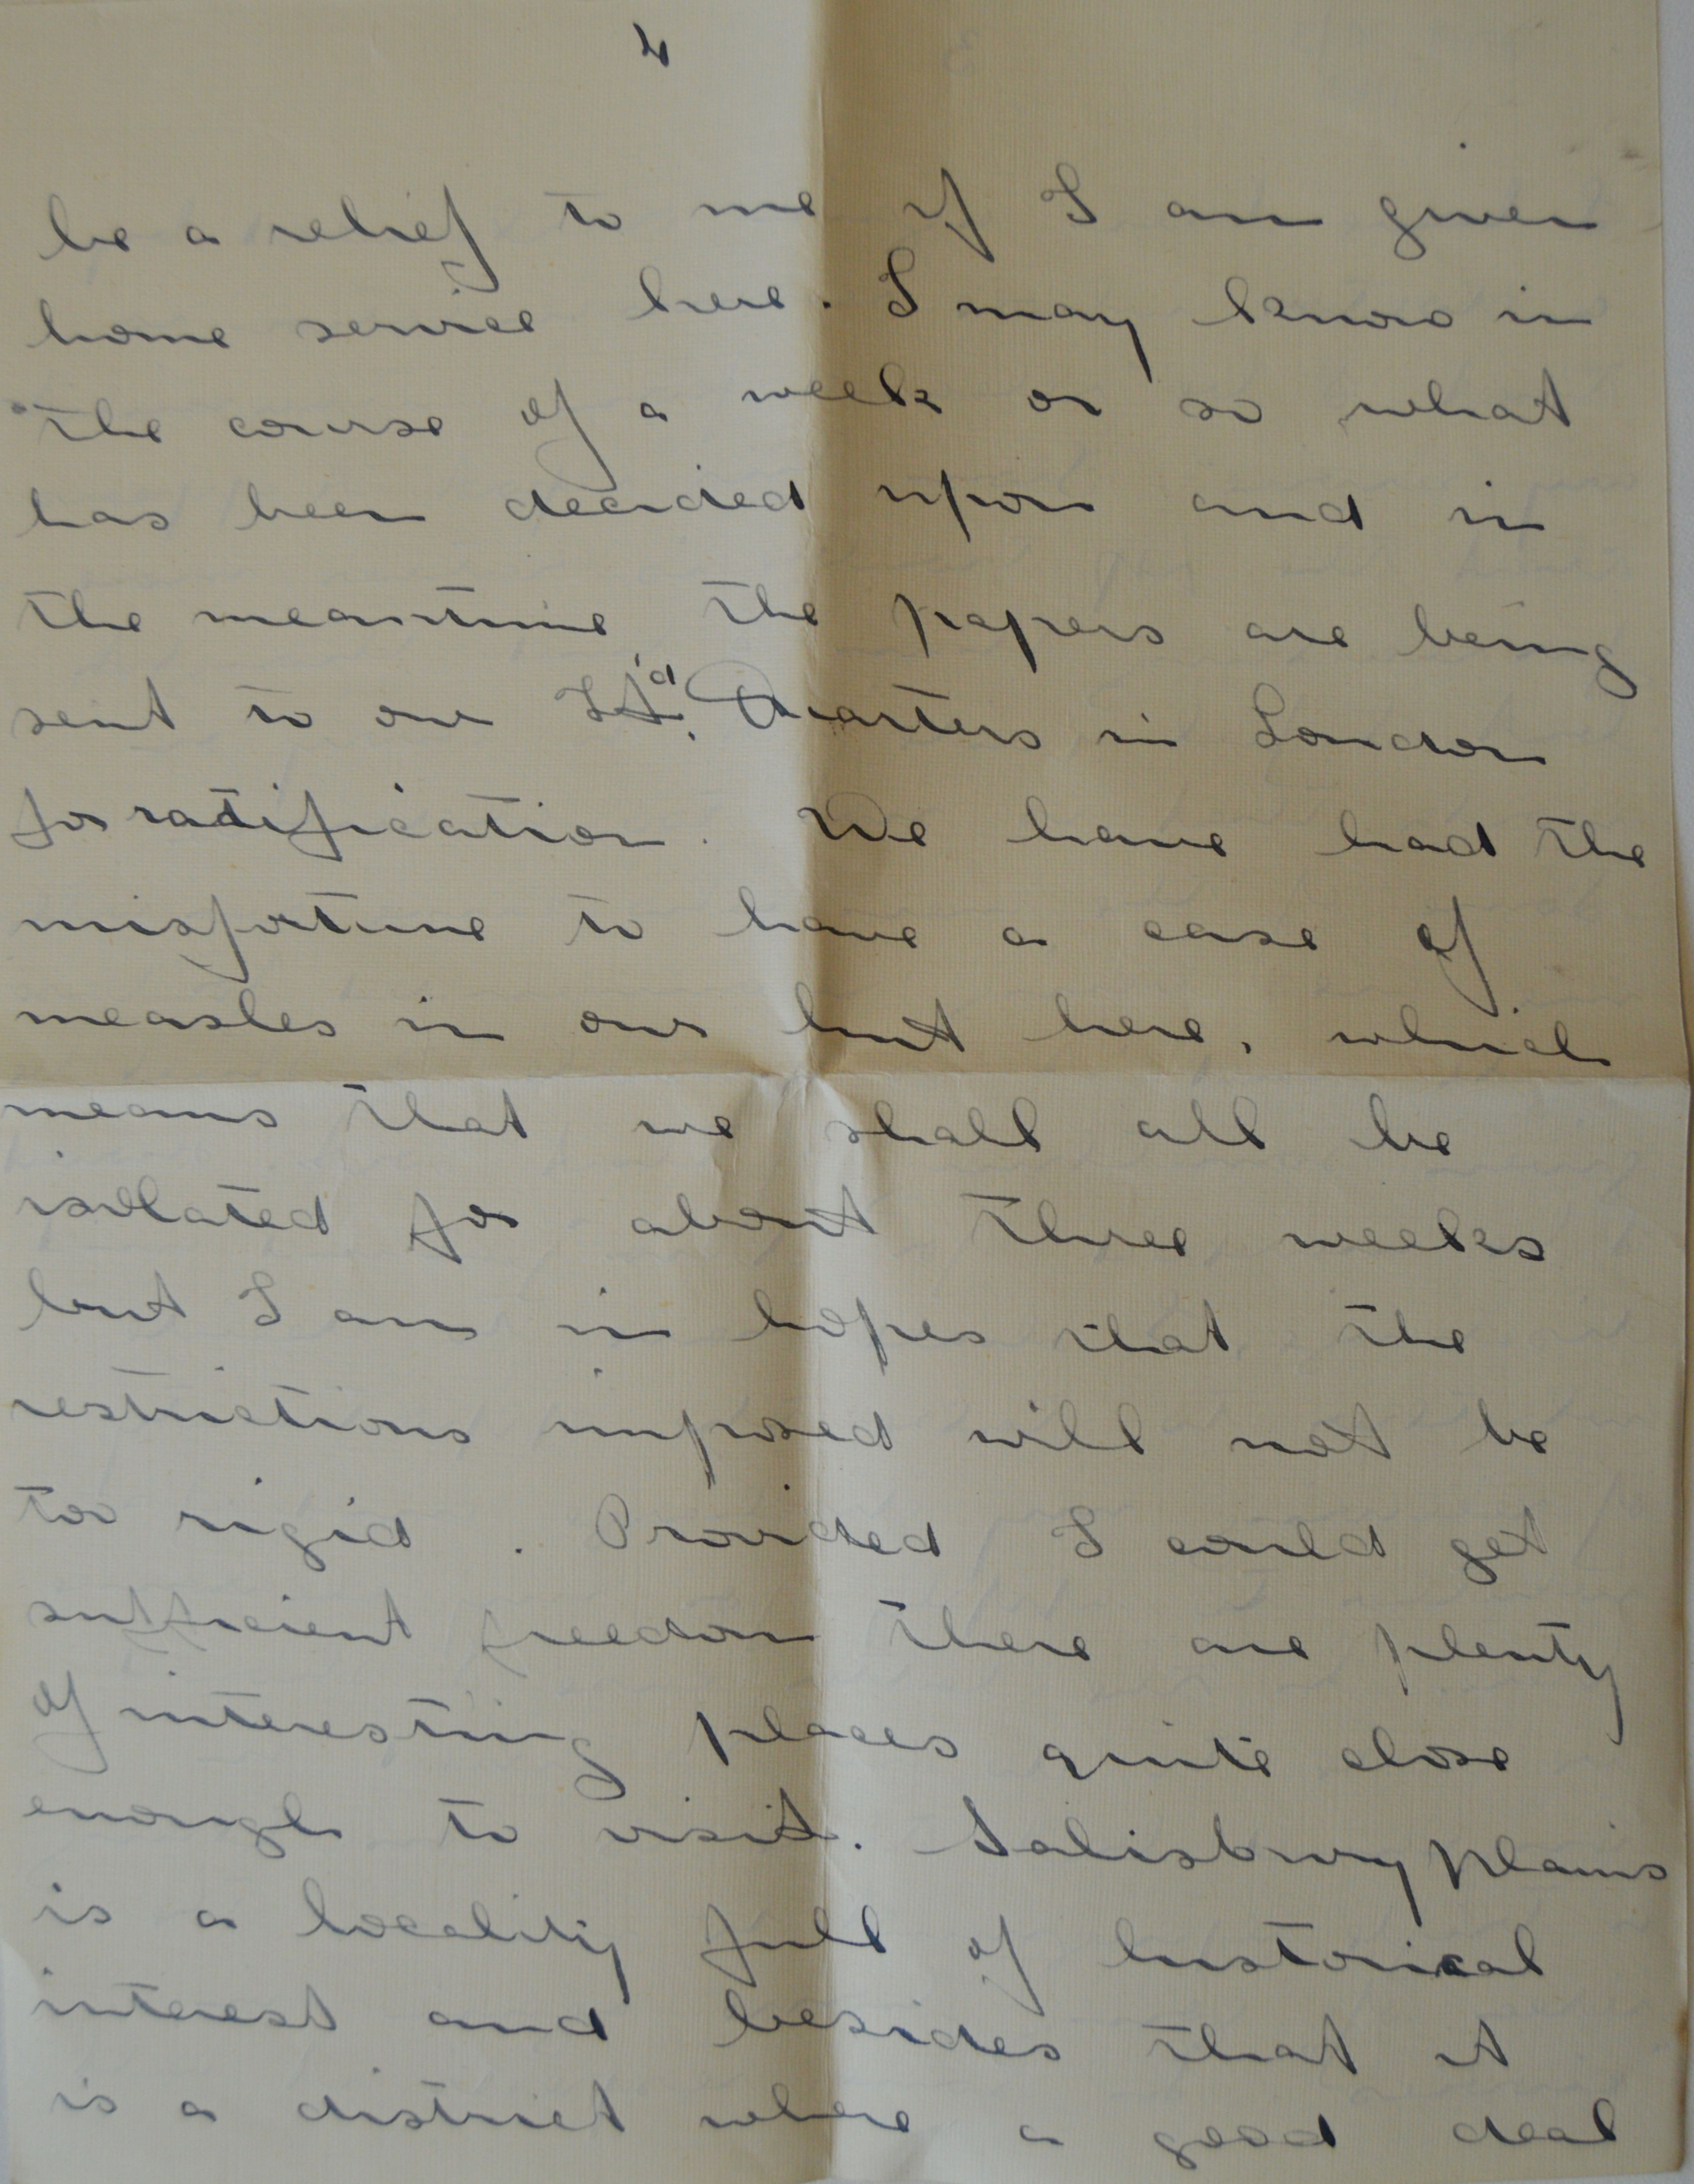 4
be a relief to me if I am given
home service here. I may know in
the course of a week or so what
has been decided upon and in
the meantime the papers are being
sent to our H'd. Quarters in London
for ratification. We have had the
misfortune to have a case of
measles in our hut here, which
means that we shall all be
isolated for about three weeks
but I am in hopes that the
restrictions imposed will not be
too rigid. Provided I could get
sufficient freedom there are plenty
of interesting places quite close
enough to visit. Salisbury plains
is a locality full of historical
interest and besides that it
is a district where a good deal